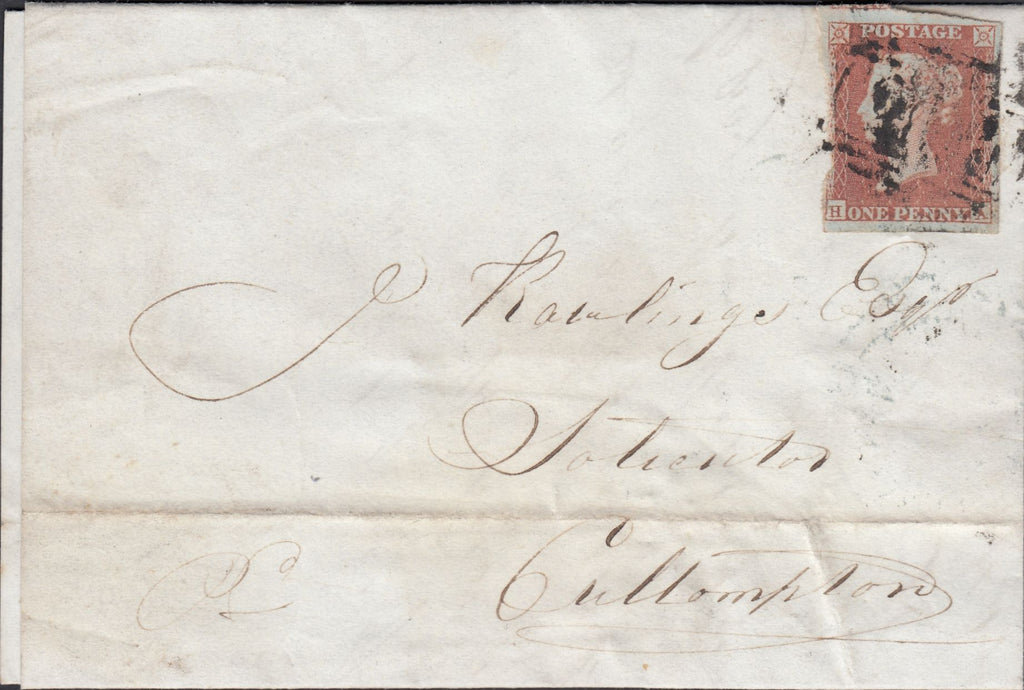 POSTAGE
H ONE PENNY
J Rawlings Esqr
Solicitor
Cullompton
Pd